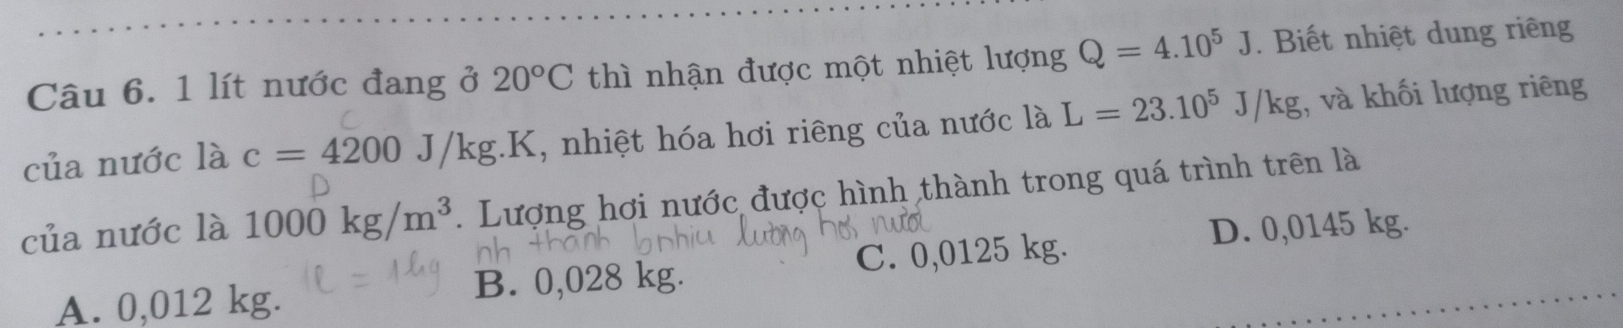 Câu 6. 1 lít nước đang ở 20°C thì nhận được một nhiệt lượng Q = 4.10⁵ J. Biết nhiệt dung riêng
C
của nước là c = 4200 J/kg.K, nhiệt hóa hơi riêng của nước là L = 23.10⁵ J/kg, và khối lượng riêng
D
của nước là 1000 kg/m³. Lượng hơi nước được hình thành trong quá trình trên là
1l = 1kg nh thành bnhiu lượng hơi nước
A. 0,012 kg. B. 0,028 kg. C. 0,0125 kg. D. 0,0145 kg.